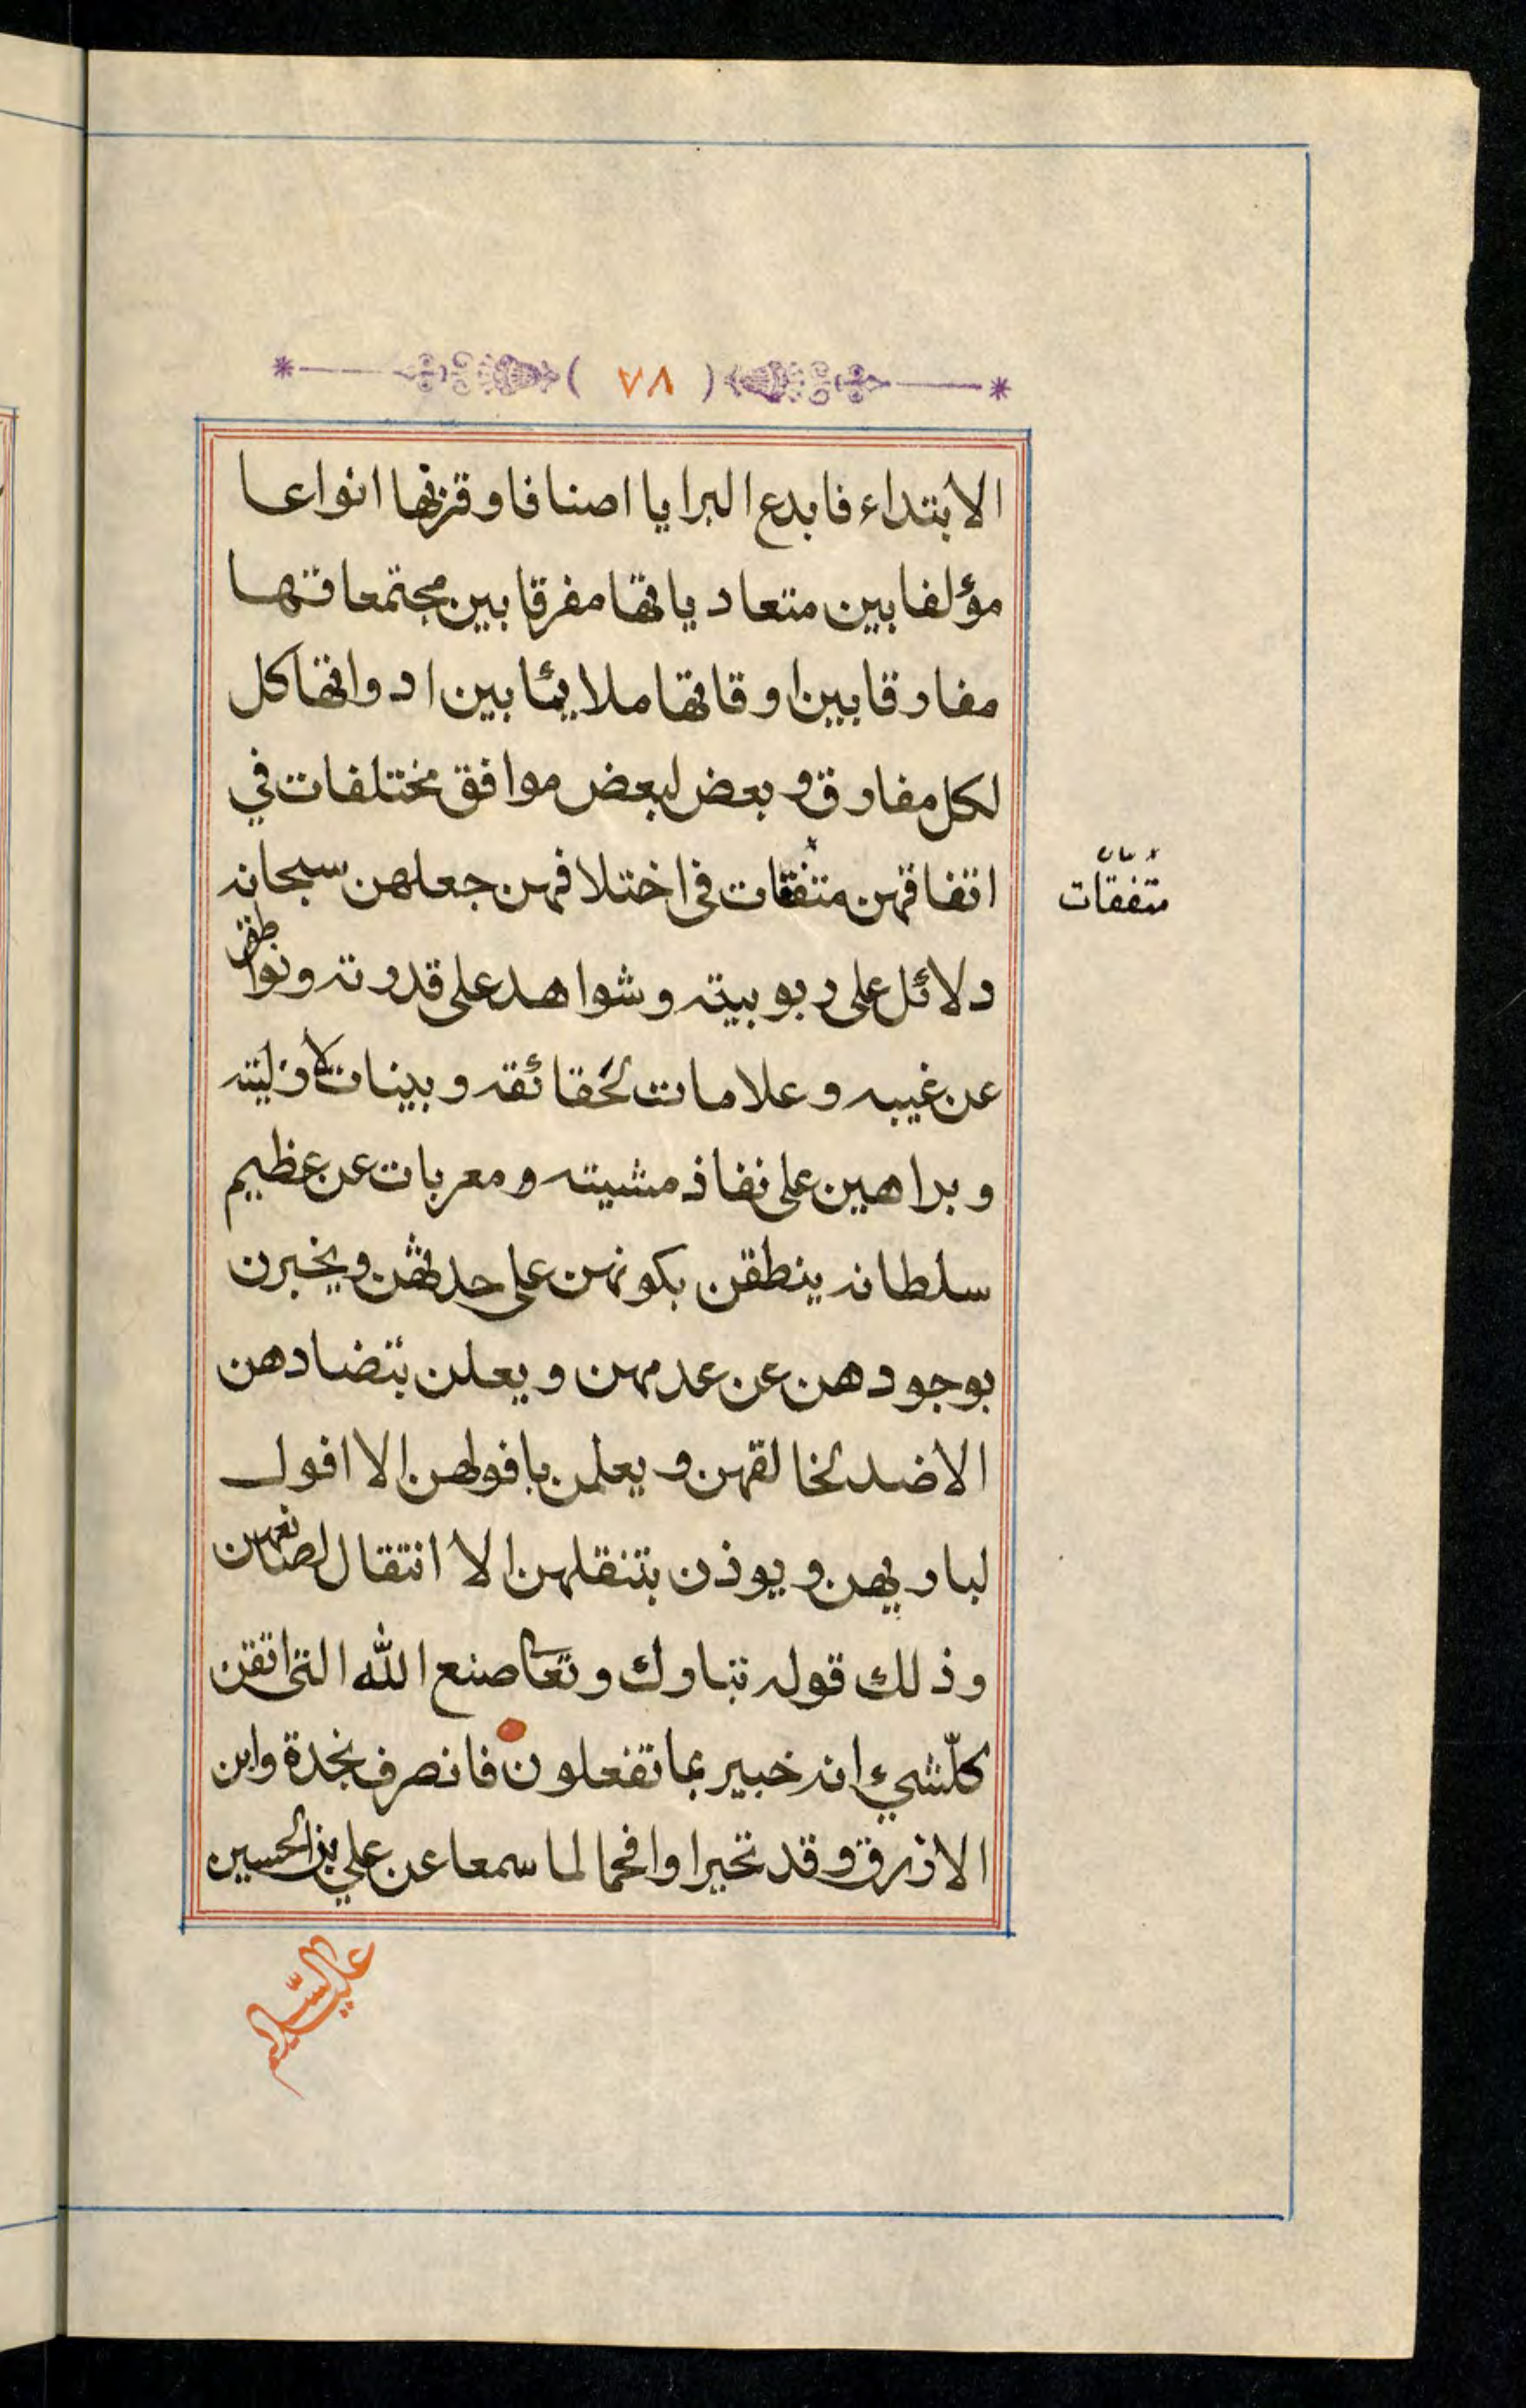 ( ٧٨ )
الابتداء فابدع البرايا اصنافا وقرنها انواعا
مؤلفا بين متعادياتها مفرقا بين مجتمعاتها
مفارقا بين اوقاتها ملايمًا بين ادواتها كل
لكل مفارق و بعض لبعض موافق مختلفات في
اتفاقهن متفقات في اختلافهن جعلهن سبحانه
متفقات
دلائل على ربوبيته وشواهد على قدرته ونواطق
عن غيبه وعلامات لحقائقه وبينات لازليته
وبراهين على نفاذ مشيته ومعربات عن عظيم
سلطانه ينطقن بكونهن على حدثهن ويخبرن
بوجودهن عن عدمهن ويعلن بتضادهن
الاضد لخالقهن ويعلمن بافولهن الا افول
لباريهن ويوذن بتنقلهن الا انتقال لصانعهن
وذلك قوله تبارك وتعا صنع الله التى اتقن
كلّشيء انه خبير بما تفعلون فانصرف نجدة وابن
الازرق وقد تحيرا وافحما لما سمعا عن علي بن الحسين
عليه السّلام